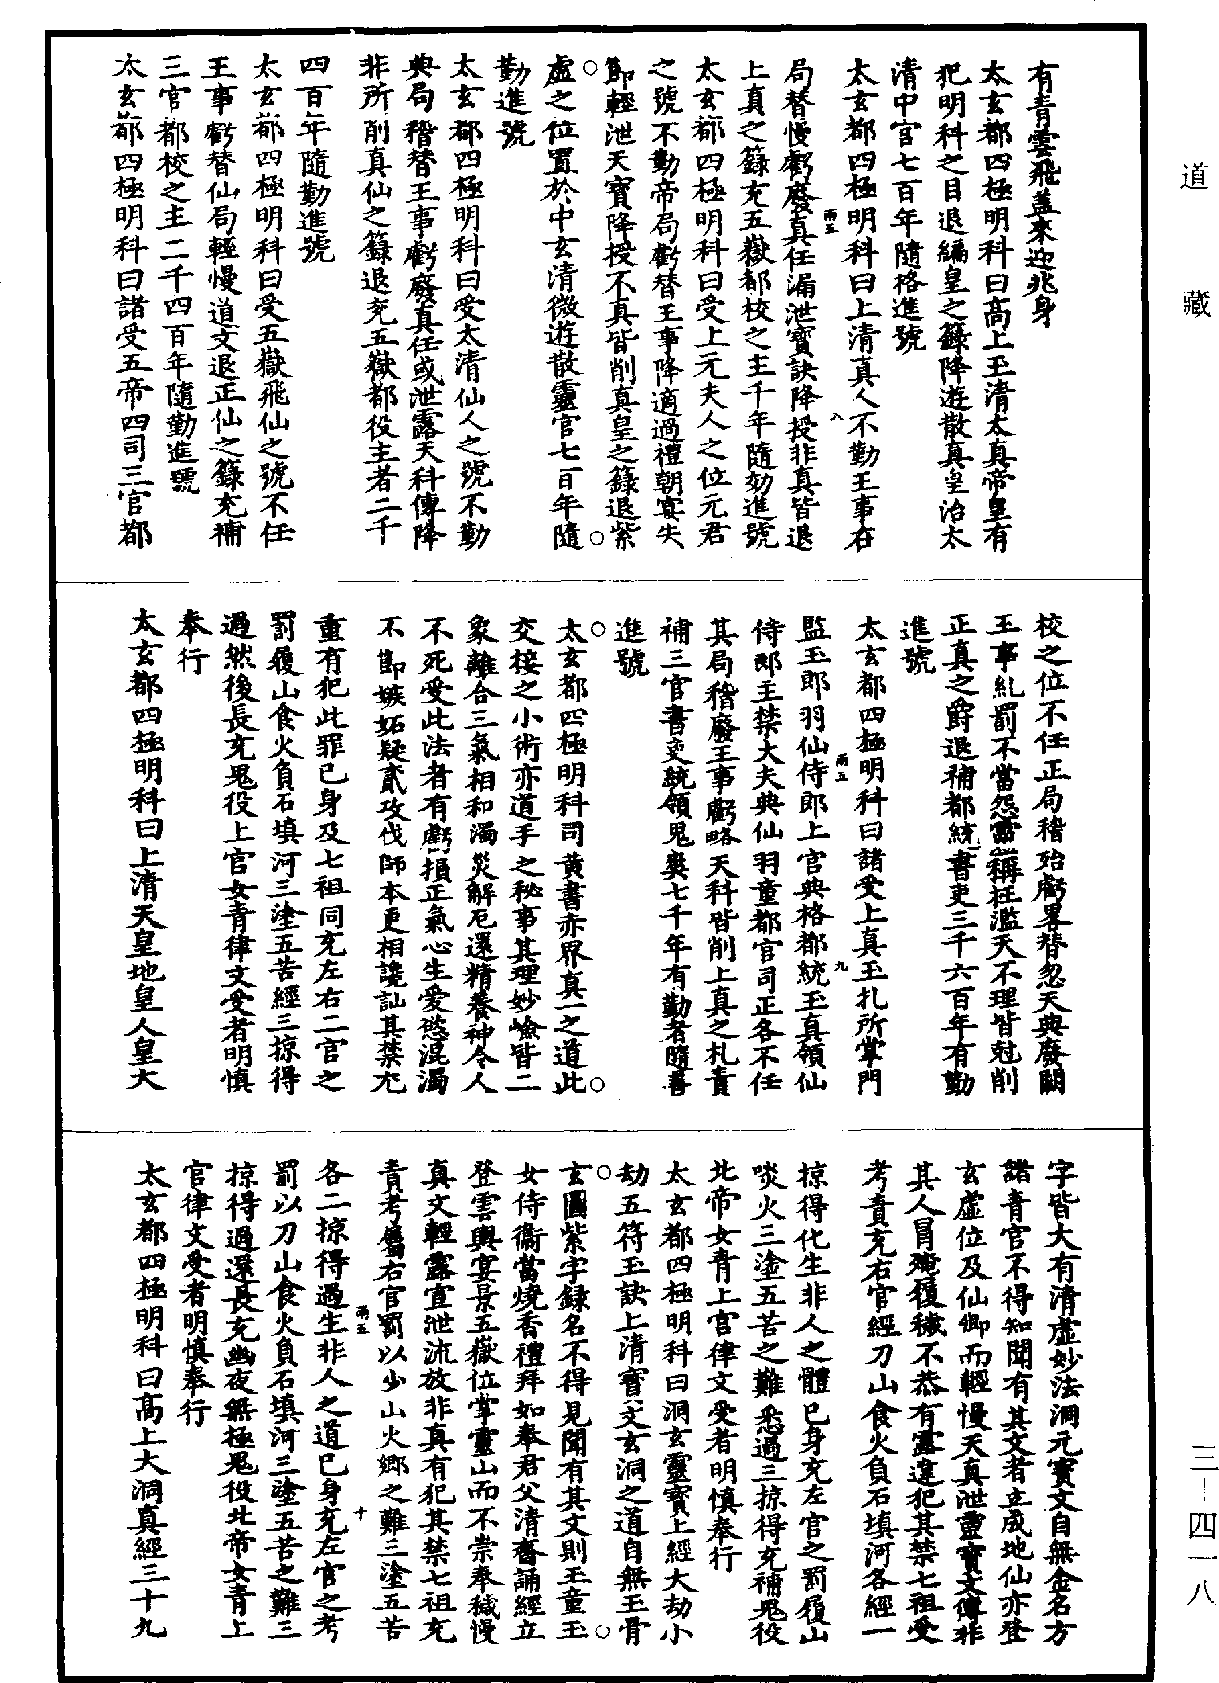 道藏
三—四一八
有青雲飛蓋來迎兆身
太玄都四極明科曰高上玉清太真帝皇有
犯明科之目退編皇之籙降遊散真皇治太
清中宮七百年隨格進號
太玄都四極明科曰上清真人不勤王事在
局替慢虧廢真任漏泄寶訣降授非真皆退
上真之籙充五嶽都校之主千年隨勤進號
太玄都四極明科曰受上元夫人之位元君
之號不勤帝局虧替王事降適過禮朝宴失
節輕泄天寶降授不真皆削真皇之籙退紫
虛之位置於中玄清微遊散靈官七百年隨
勤進號
太玄都四極明科曰受太清仙人之號不勤
典局稽替王事虧廢真任或泄露天科傳降
非所削真仙之籙退充五嶽都役主者二千
四百年隨勤進號
太玄都四極明科曰受五嶽飛仙之號不任
王事虧替仙局輕慢道文退正仙之籙充補
三官都校之主二千四百年隨勤進號
太玄都四極明科曰諸受五帝四司三官都
校之位不任正局稽殆虧畧替忽天典廢闕
王事糺罰不當怨靈稱枉濫天不理皆尅削
正真之爵退補都統書吏三千六百年有勤
進號
太玄都四極明科曰諸受上真玉札所掌門
監玉郎羽仙侍郎上官典格都統玉真領仙
侍郎主禁大夫典仙羽童都官司正各不任
其局稽廢王事虧略天科皆削上真之札責
補三官書吏統領鬼喪七千年有勤者隨善
進號
太玄都四極明科司黃書赤界真一之道此
交接之小術亦道手之秘事其理妙嶮皆二
象離合三氣相和濁災解厄還精養神令人
不死受此法者有虧損正氣心生愛慾混濁
不節嫉妬疑貳攻伐師本更相讒訕其禁尤
重有犯此罪己身及七祖同充左右二官之
罰履山食火負石填河三塗五苦經三掠得
過然後長充鬼役上官女青律文受者明慎
奉行
太玄都四極明科曰上清天皇地皇人皇大
字皆大有清虛妙法洞元寶文自無金名方
諸青宮不得知聞有其文者立成地仙亦登
玄虛位及仙卿而輕慢天真泄靈寶文傳非
其人冒殗履穢不恭有露違犯其禁七祖受
考責充右官經刀山食火負石填河各經一
掠得化生非人之體己身充左官之罰履山
啖火三塗五苦之難悉過三掠得充補鬼役
北帝女青上宮律文受者明慎奉行
太玄都四極明科曰洞玄靈寶上經大劫小
劫五符玉訣上清寶文玄洞之道自無玉骨
玄圖紫字録名不得見聞有其文則玉童玉
女侍衞當燒香禮拜如奉君父清齋誦經立
登雲輿宴景五嶽位掌靈山而不崇奉穢慢
真文輕露宣泄流放非真有犯其禁七祖充
責考屬右官罰以少山火鄉之難三塗五苦
各二掠得過生非人之道己身充左官之考
罰以刀山食火負石填河三塗五苦之難三
掠得過還長充幽夜無極鬼役北帝女青上
官律文受者明慎奉行
太玄都四極明科曰高上大洞真經三十九